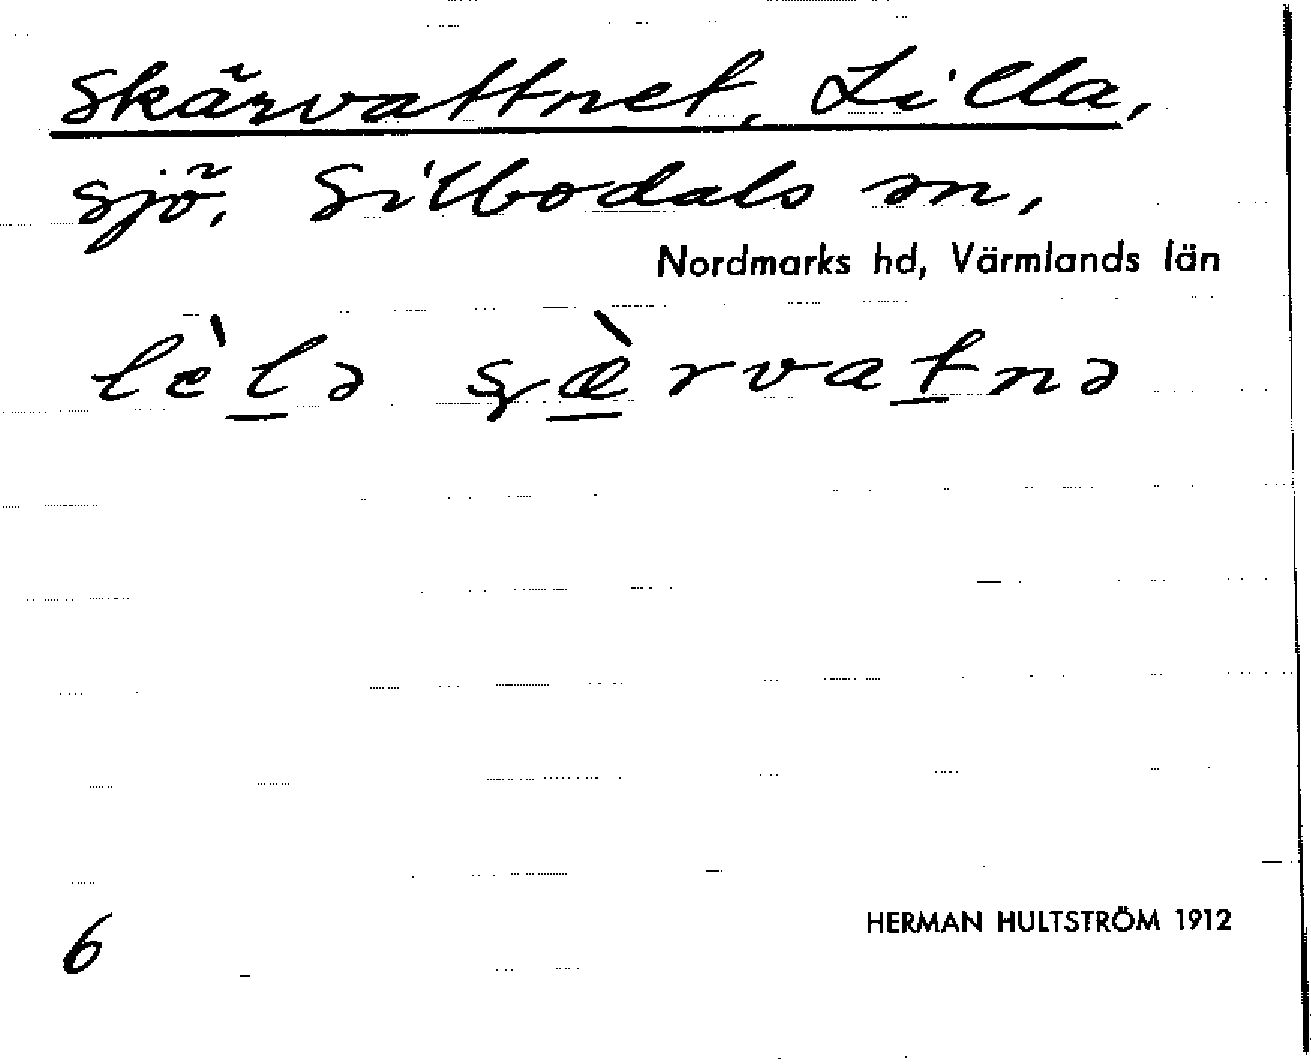 Skärvattnet, Lilla,
sjö, Silbodals sn,
Nordmarks hd, Värmlands län
lèl̲ə ʂæ̲̀rvat̲nə
6
HERMAN HULTSTRÖM 1912